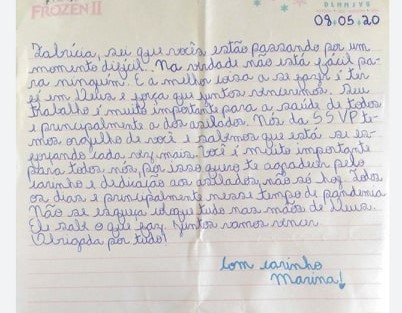 FROZEN II
09.05.20
Fabrícia, sei que vocês estão passando por um
momento difícil. Na verdade não está fácil pa-
ra ninguém. E a melhor coisa a se fazer é ter
fé em Deus e força que juntos venceremos. Seu
trabalho é muito importante para a saúde de todos
e principalmente a dos asilados. Nós da SSVP te-
mos orgulho de você e sabemos que está se es-
forçando cada vez mais. Você é muito importante
para todos nós, por isso quero te agradecer pelo
carinho e dedicação aos asilados, não só hoje. Todos
os dias e principalmente nesse tempo de pandemia
Não se esqueça coloque tudo nas mãos de Deus.
Ele sabe o que faz. Juntos vamos vencer.
Obrigada por tudo!
Com carinho
Marina